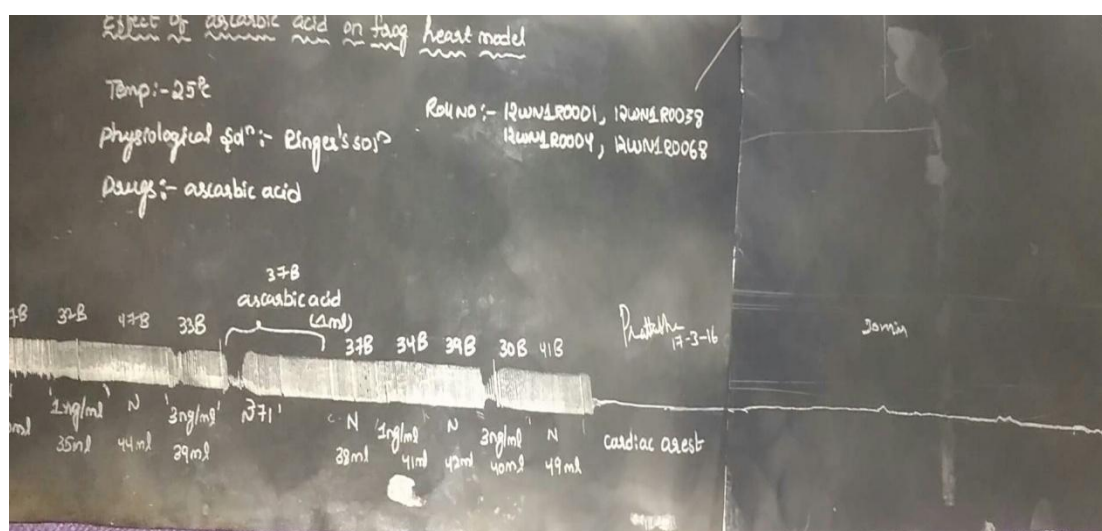 Effect of ascarbic acid on frog heart model
Temp:- 25°C
Physiological Solⁿ:- Ringer's solⁿ
Drugs:- ascarbic acid
Roll NO:- 12WN1R0001, 12WN1R0038
12WN1R0004, 12WN1R0068
37B
ascarbic acid
(1ml)
7B 32B 47B 33B 37B 34B 39B 30B 41B
17-3-16
30min
1ng/ml N 3ng/ml N 371 N 1ng/ml N 3ng/ml N
35ml 44ml 39ml 38ml 41ml 42ml 40ml 49ml
cardiac arest